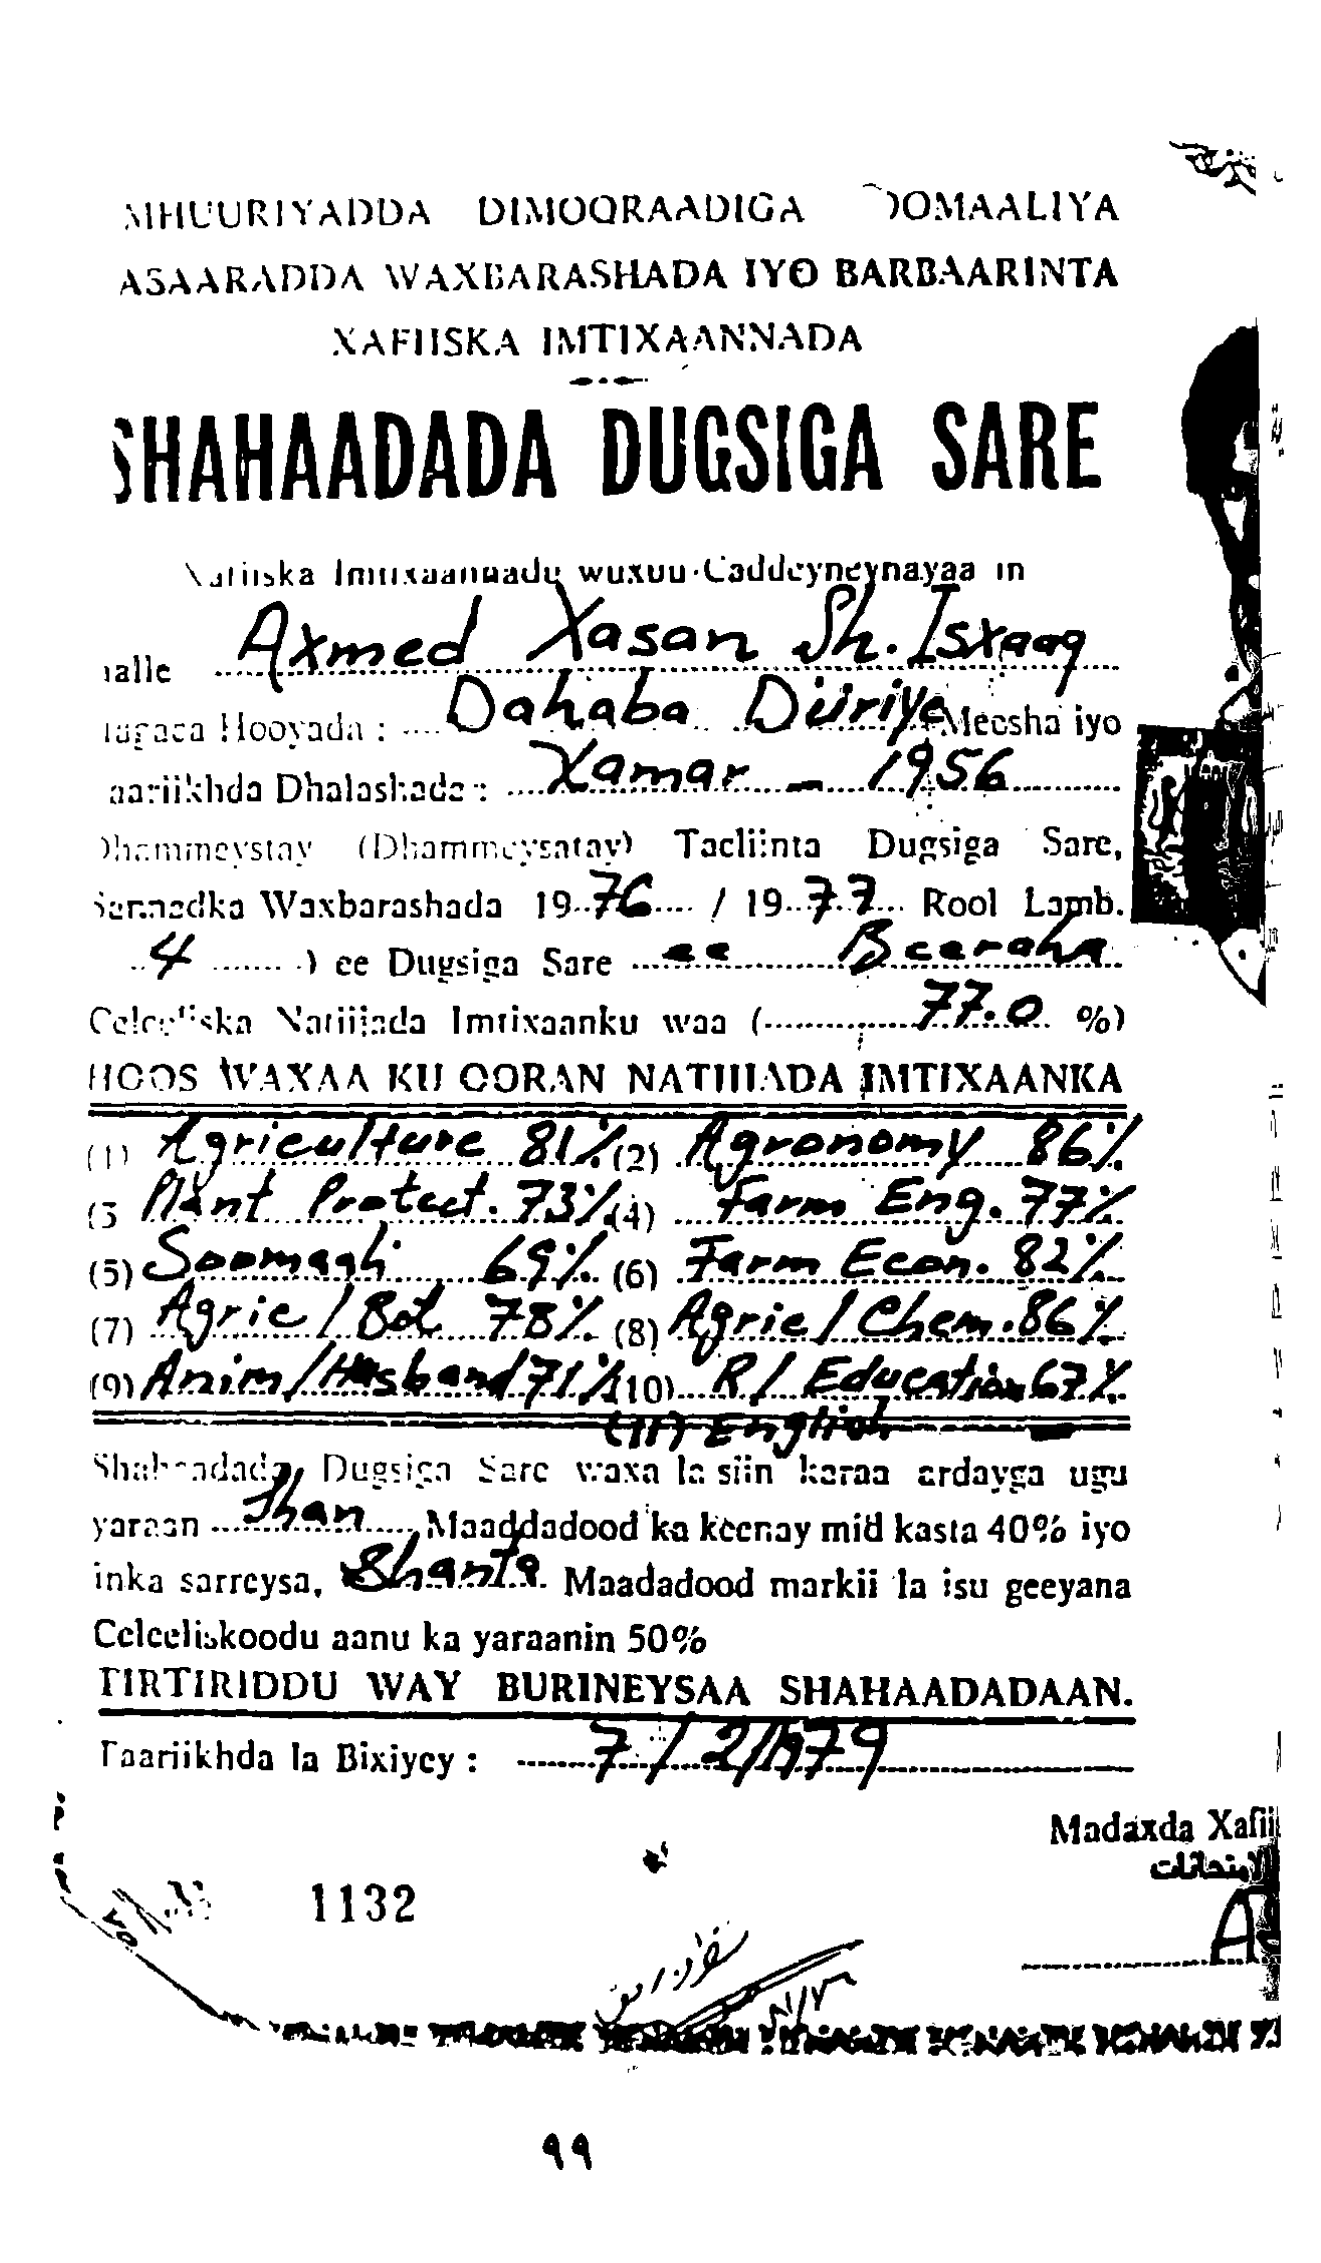 MHUURIYADDA DIMOQRAADIGA SOOMAALIYA
ASAARADDA WAXBARASHADA IYO BARBAARINTA
XAFIISKA IMTIXAANNADA
SHAHAADADA DUGSIGA SARE
Xafiiska Imtixaannadu wuxuu Caddeyneynayaa in
Jalle Axmed Xasan Sh. Isxaaq
Magaca Hooyada: Dahaba Diiriye Meesha iyo
aariikhda Dhalashada: Xamar - 1956
Dhammeystay (Dhammeysatay) Tacliinta Dugsiga Sare,
Sannadka Waxbarashada 1976 / 1977 Rool Lamb.
4 ) ee Dugsiga Sare ee Beeraha
Celceliska Natiijada Imtixaanku waa ( 77.0 %)
HOOS WAXAA KU QORAN NATIIJADA IMTIXAANKA
(1) Agriculture 81% (2) Agronomy 86%
(3 Plant Protect. 73% (4) Farm Eng. 77%
(5) Soomaali 69% (6) Farm Econ. 82%
(7) Agric/Bot 78% (8) Agric/Chem. 86%
(9) Anim/Husband 71% (10) R/Education 67%
(11) English -
Shahaadada Dugsiga Sare waxa la siin karaa ardayga ugu
yaraan Jhan, Maaddadood ka keenay mid kasta 40% iyo
inka sarreysa, Shanta Maadadood markii la isu geeyana
Celceliskoodu aanu ka yaraanin 50%
TIRTIRIDDU WAY BURINEYSAA SHAHAADADAAN.
Taariikhda la Bixiyey: 7/2/1979
Madaxda Xafii
الامتحانات
1132
٩٩